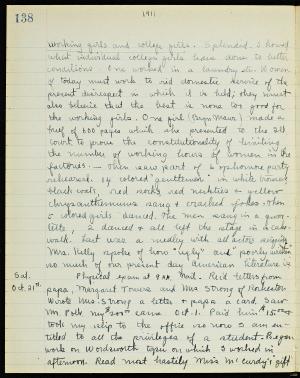 138
1911
working girls and college girls. Splendid. I heard
what individual college girls have done to better
conditions. One worked in a laundry etc. Women
of today must work to rid domestic service of the
present disrespect in which it is held; they must
also believe that the best is none too good for
the working girls. One girl (Bryn Mawr) made a
brief of 600 pages which she presented to the Ill
court to prove the constitutionality of limiting
the number of working hours of women in the
factories. — Then saw part of Sophomore party
rehearsed. 14 colored "gentlemen" in white trousers
black coats, red socks, red neckties & yellow
chrysanthemums sang & cracked jokes. Then
5 colored girls danced. The men sang in a quar-
tette, 2 danced & all left the stage in a cake
walk. Last was a medley with all actors singing
Mrs. Kelly spoke of how "ugly" and poorly written
so much of our present day American literature is
Sat.
Oct. 21st.
Physical exam at 9 A.M. Mail. Rec'd letters from
papa, Margaret Towne and Mrs Strong of
Wrote Mrs. Strong a letter & papa a card. Saw
Mr. Polk my came Oct. 1. Paid him $15.00
took my slip to the office so now I am en-
titled to all the privileges of a student. Began
work on Wordsworth topic on which I worked in
afternoon. Read most hastily Miss McCurdy's gift